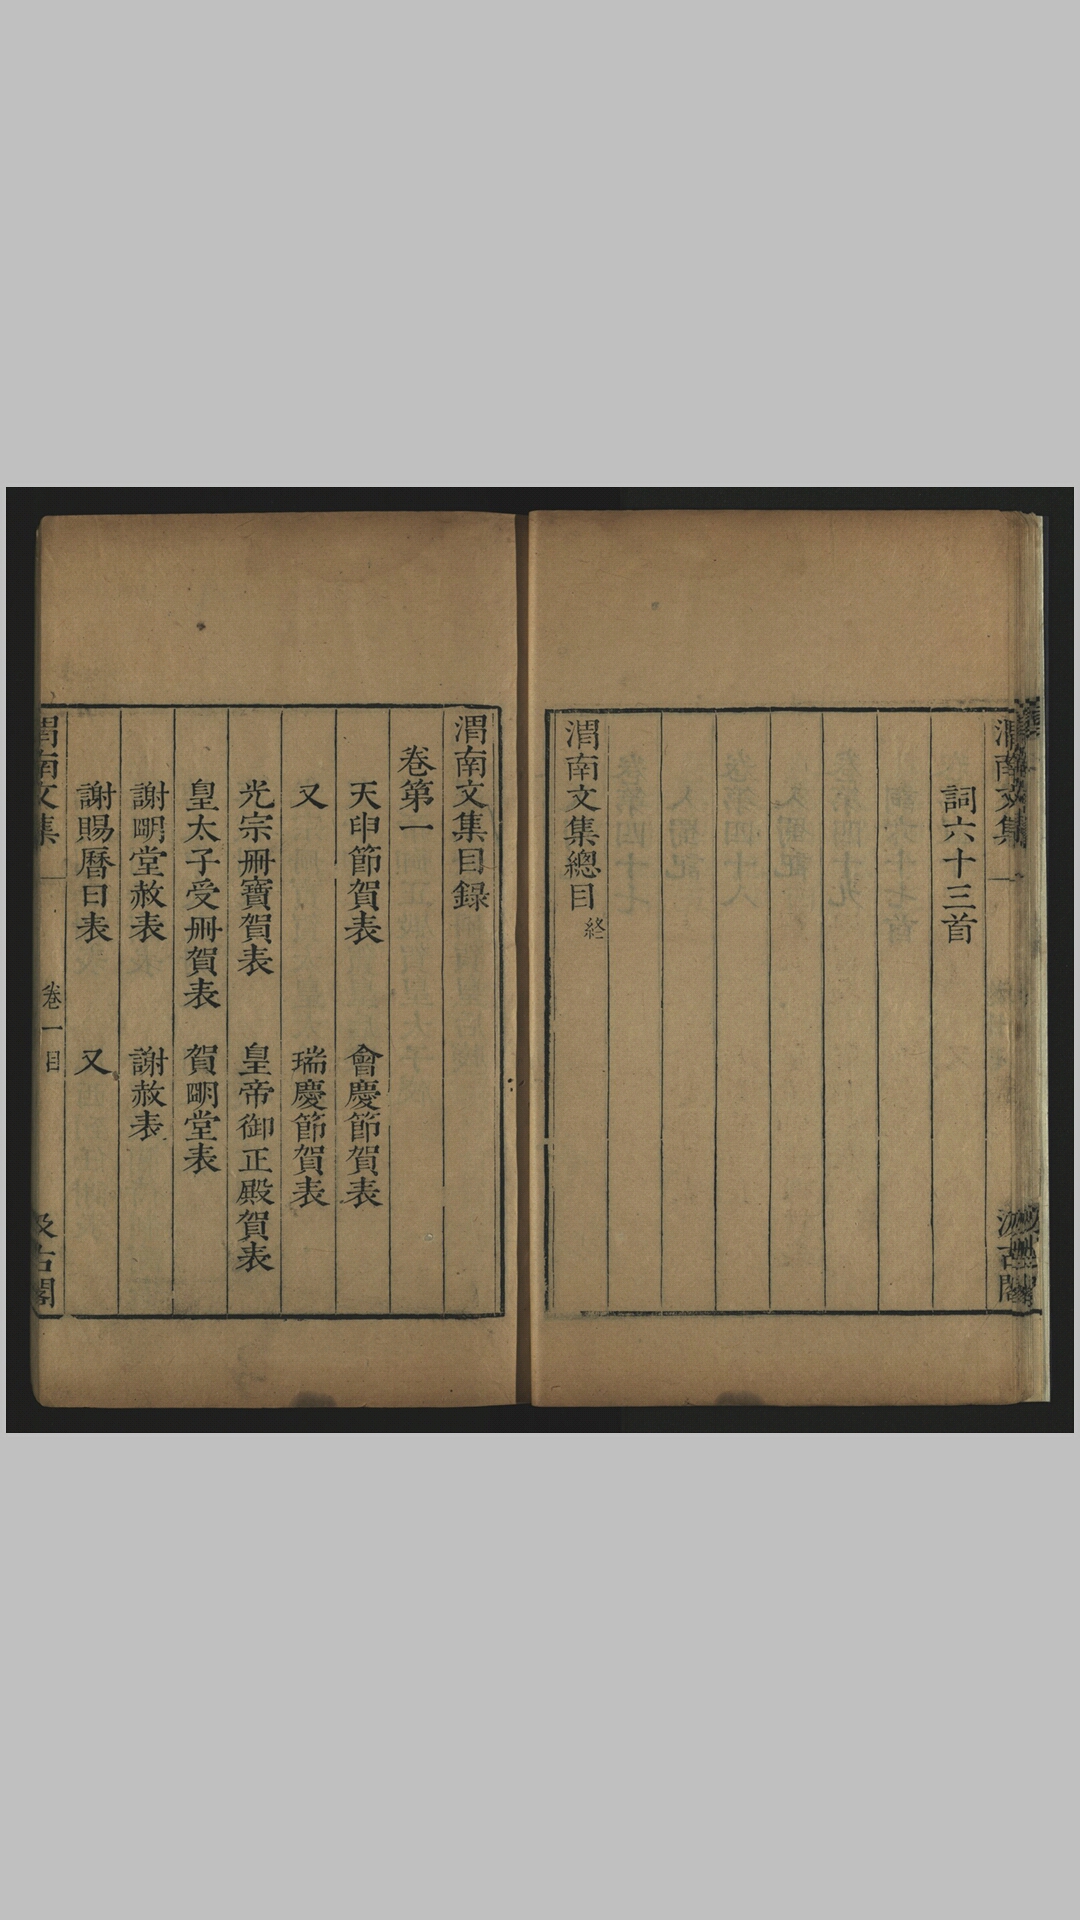 渭南文集
汲古閣
詞六十三首
渭南文集總目終
渭南文集目録
卷第一
天申節賀表 會慶節賀表
又 瑞慶節賀表
光宗冊寶賀表 皇帝御正殿賀表
皇太子受冊賀表 賀明堂表
謝明堂赦表 謝赦表
謝賜曆日表 又
渭南文集 卷一目 汲古閣